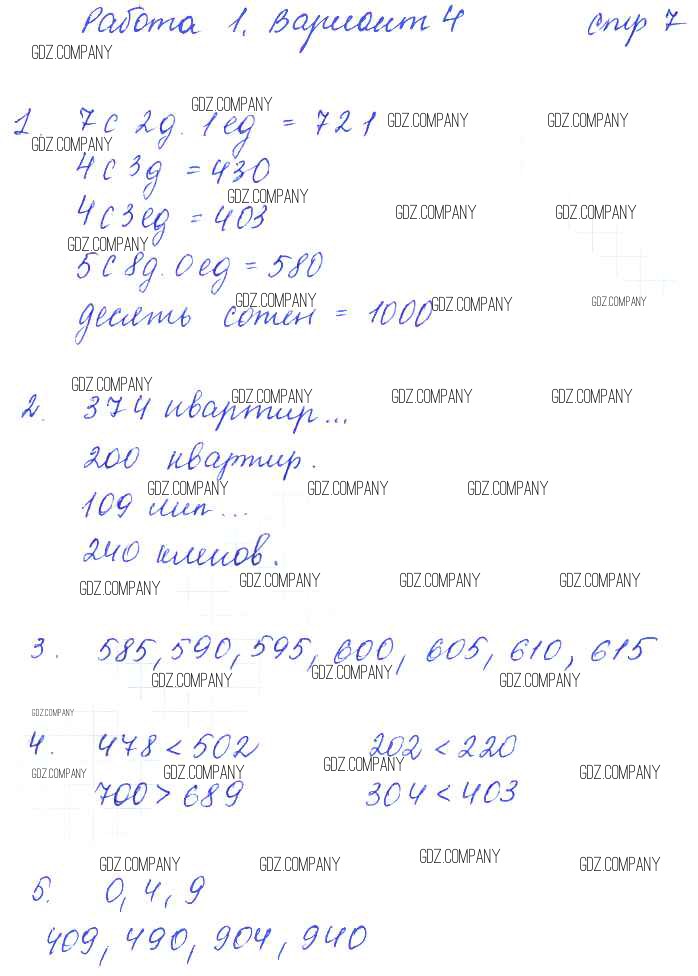 Работа 1. Вариант 4 стр 7
1. 7с 2д. 1ед = 721
4с 3д = 430
4с 3ед = 403
5с 8д. 0ед = 580
десять сотен = 1000
2. 374 квартир...
200 квартир.
109 лип...
240 кленов.
3. 585, 590, 595, 600, 605, 610, 615
4. 478 < 502 202 < 220
700 > 689 304 < 403
5. 0, 4, 9
409, 490, 904, 940
GDZ.COMPANY